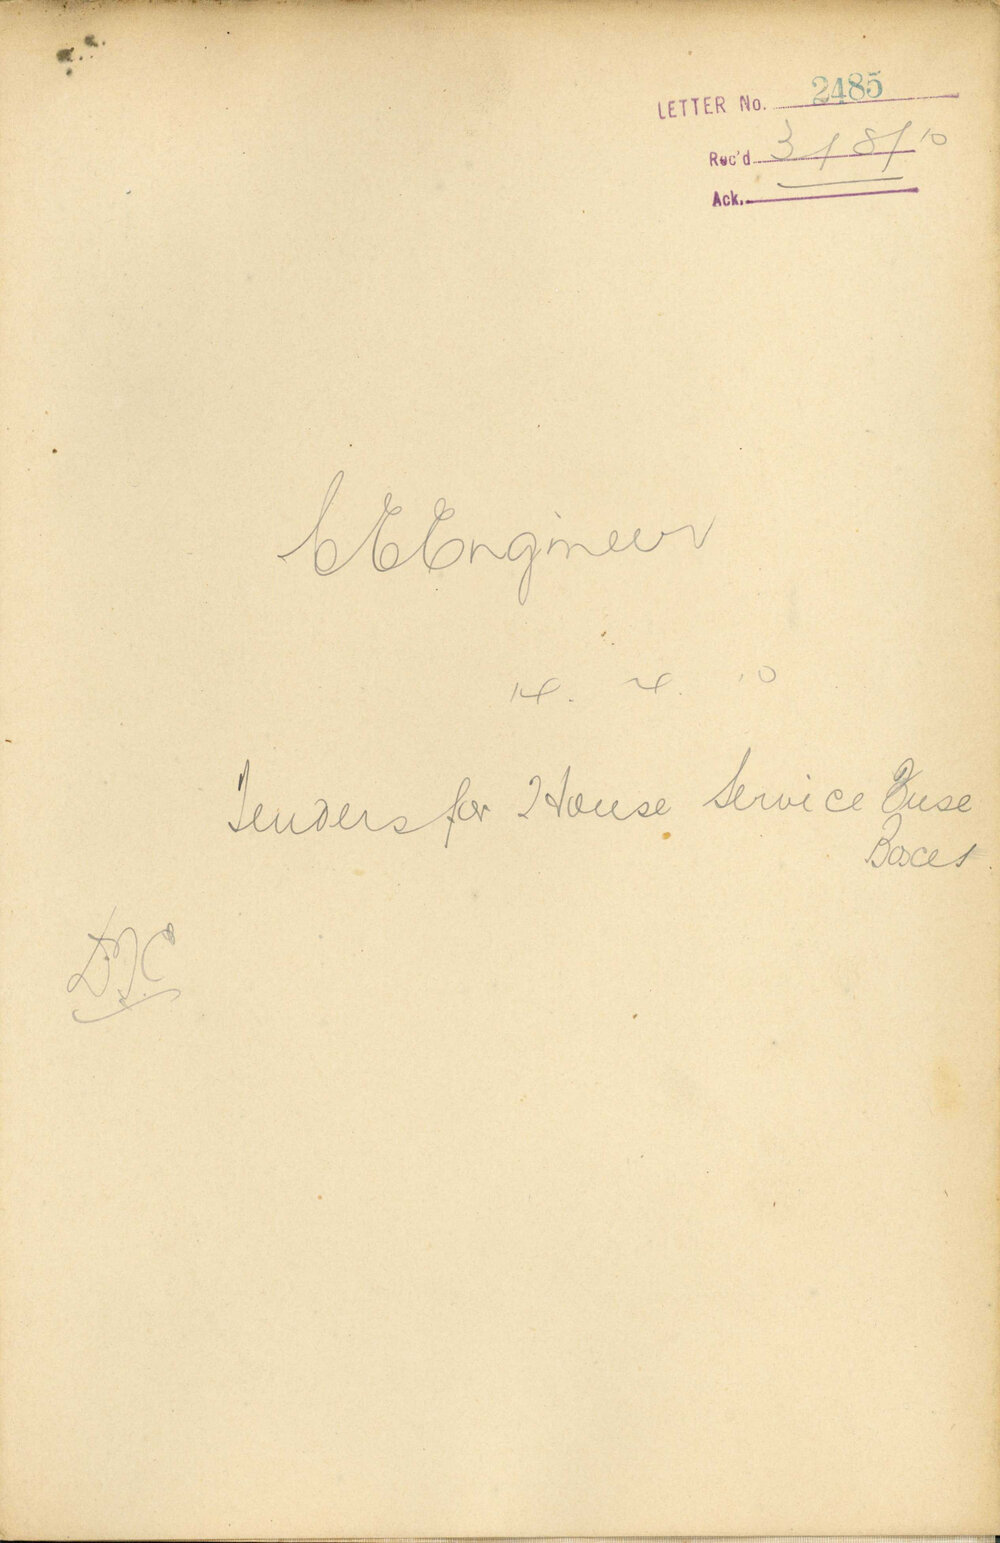 LETTER No. 2485
Rec'd 3/8/10
Ack.
C E Engineer
14. 4. 10
Tenders for House Service Fuse
Boxes